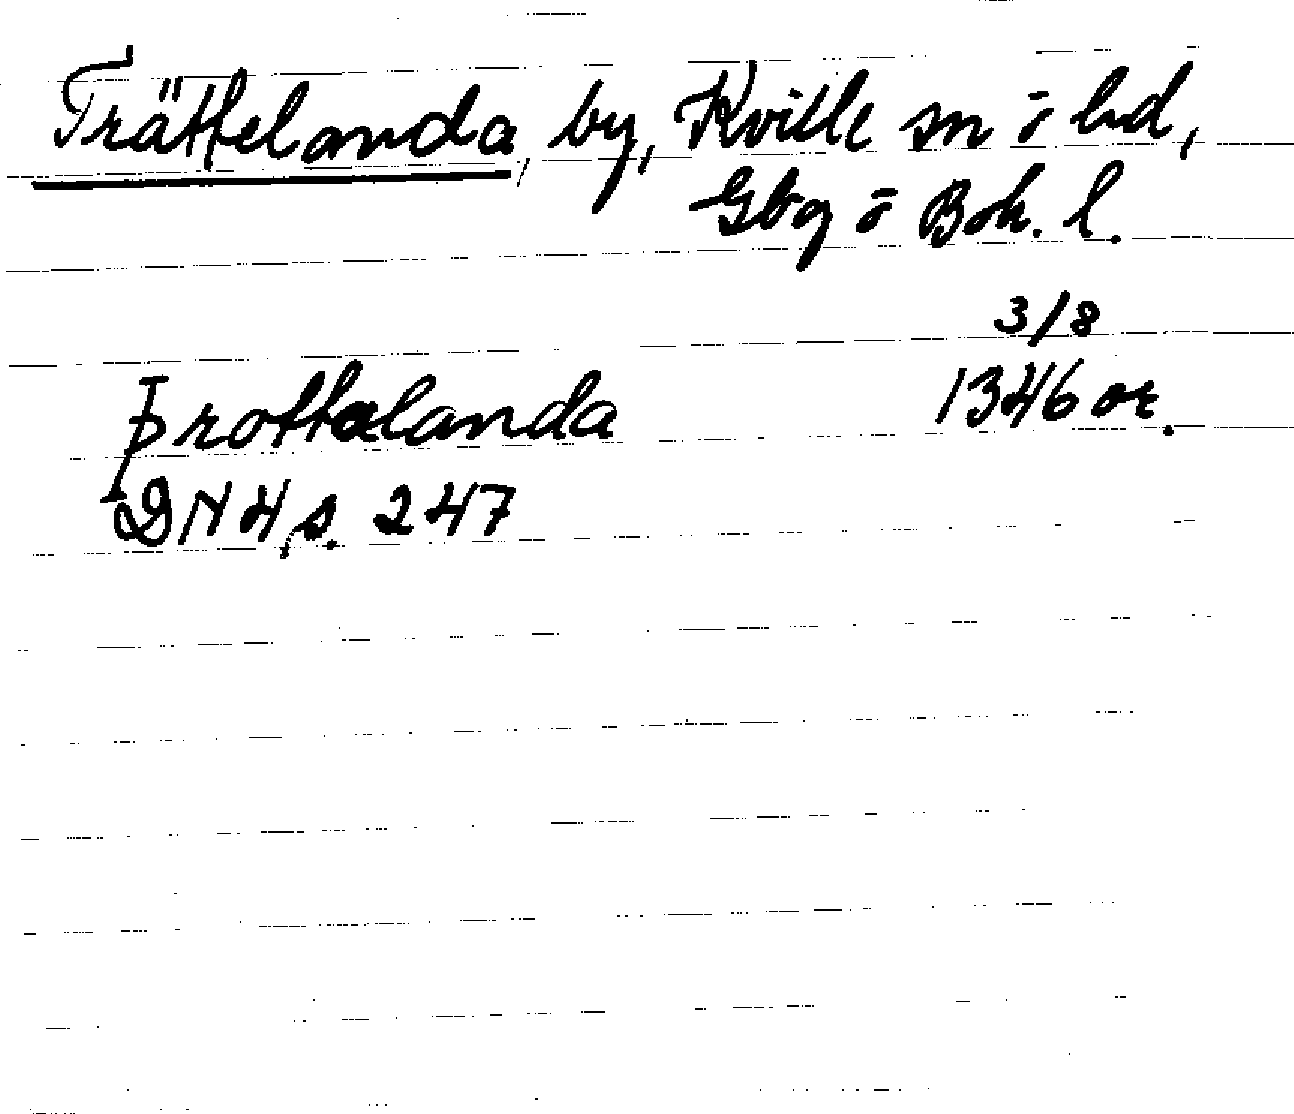 Trättelanda, by, Kville sn ō hd,
Gbg ō Boh. l.
3/8
Þrottalanda 1346 or.
DN 4, s. 247